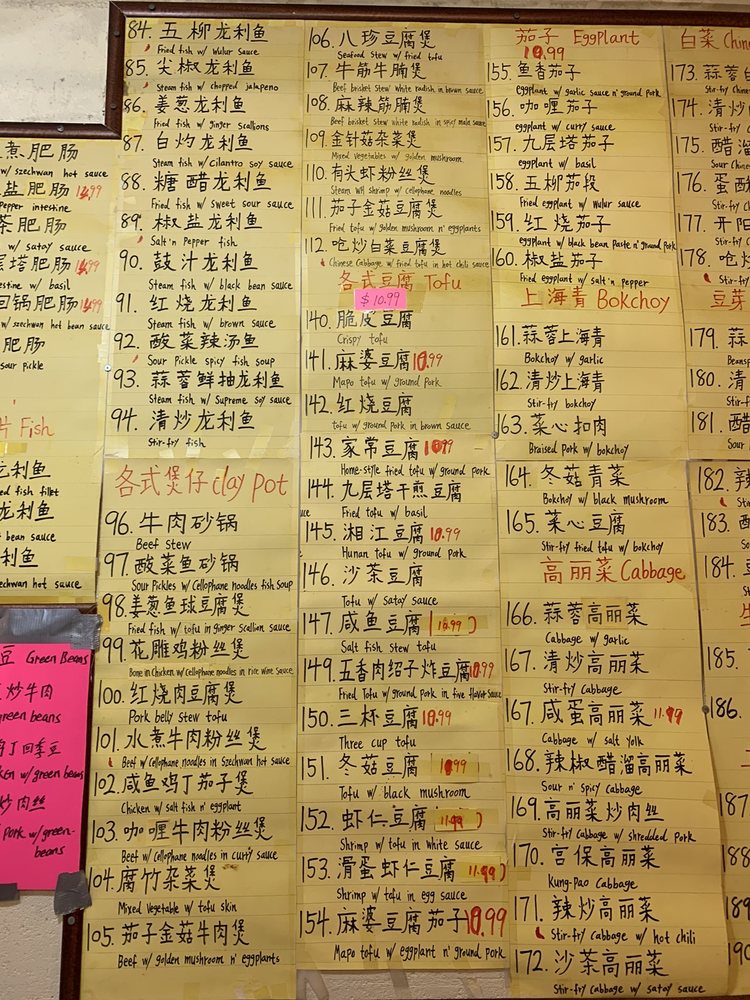 煮肥肠
w/ szechwan hot sauce
盐肥肠 11.99
Pepper intestine
茶肥肠
w/ satay sauce
塔肥肠 11.99
testine w/ basil
回锅肥肠 11.99
w/ szechwan bean sauce
肥肠
sour pickle
片 Fish
龙利鱼
d fish filet
龙利鱼
bean sauce
利鱼
zechwan hot sauce
豆 Green Beans
炒牛肉
green beans
丁四季豆
w/ green beans
炒肉丝
pork w/ green-
beans
84. 五柳龙利鱼
Fried fish w/ Wulur sauce
85. 尖椒龙利鱼
Steam fish w/ chopped jalapeno
86. 姜葱龙利鱼
Fried fish w/ ginger scallions
87. 白灼龙利鱼
Steam fish w/ cilantro soy sauce
88. 糖醋龙利鱼
Fried fish w/ sweet sour sauce
89. 椒盐龙利鱼
Salt'n Pepper fish
90. 鼓汁龙利鱼
Steam fish w/ black bean sauce
91. 红烧龙利鱼
Steam fish w/ brown sauce
92. 酸菜辣汤鱼
Sour Pickle spicy fish soup
93. 蒜蓉鲜抽龙利鱼
Steam fish w/ Supreme Soy sauce
94. 清炒龙利鱼
Stir-fry fish
各式煲仔 clay pot
96. 牛肉砂锅
Beef stew
97. 酸菜鱼砂锅
Sour Pickles w/ Cellophane noodles fish Soup
98. 姜葱鱼球豆腐煲
Fried fish w/ tofu in ginger Scallion sauce
99. 花雕鸡粉丝煲
Bone in Chicken w/ Cellophane noodles in rice wine Sauce
100. 红烧肉豆腐煲
Pork belly stew tofu
101. 水煮牛肉粉丝煲
Beef w/ Cellophane noodles in Szechwan hot sauce
102. 咸鱼鸡丁茄子煲
Chicken w/ salt fish n' eggplant
103. 咖喱牛肉粉丝煲
Beef w/ Cellophane noodles in curry sauce
104. 腐竹杂菜煲
Mixed Vegetable w/ tofu skin
105. 茄子金菇牛肉煲
Beef w/ golden mushroom n' eggplants
106. 八珍豆腐煲
Seafood stew w/ fried tofu
107. 牛筋牛腩煲
Beef brisket stew white radish in brown sauce
108. 麻辣筋腩煲
Beef brisket stew white radish in spicy mala sauce
109. 金针菇杂菜煲
Mixed vegetables w/ golden mushroom
110. 有头虾粉丝煲
Steam WH shrimp w/ Cellophane noodles
111. 茄子金菇豆腐煲
Fried tofu w/ golden mushroom n' eggplants
112. 呛炒白菜豆腐煲
Chinese Cabbage w/ fried tofu in hot chili sauce
各式豆腐 Tofu
$10.99
140. 脆皮豆腐
Crispy tofu
141. 麻婆豆腐 10.99
Mapo tofu w/ ground pork
142. 红烧豆腐
tofu w/ ground pork in brown sauce
143. 家常豆腐 10.99
Home-style fried tofu w/ ground pork
144. 九层塔干煎豆腐
Fried tofu w/ basil
145. 湘江豆腐 10.99
Hunan tofu w/ ground pork
146. 沙茶豆腐
Tofu w/ Satay sauce
147. 咸鱼豆腐 10.99
Salt fish stew tofu
149. 五香肉绍子炸豆腐 10.99
Fried Tofu w/ ground pork in five flavor Sauce
150. 三杯豆腐 10.99
Three cup tofu
151. 冬菇豆腐 10.99
Tofu w/ black mushroom
152. 虾仁豆腐 11.99
Shrimp w/ tofu in white sauce
153. 滑蛋虾仁豆腐 11.99
Shrimp w/ tofu in egg sauce
154. 麻婆豆腐茄子 10.99
Mapo tofu w/ eggplant n' ground pork
茄子 Eggplant
10.99
155. 鱼香茄子
eggplant w/ garlic sauce n' ground pork
156. 咖喱茄子
eggplant w/ curry sauce
157. 九层塔茄子
eggplant w/ basil
158. 五柳茄段
Fried eggplant w/ Wulur sauce
159. 红烧茄子
eggplant w/ black bean Paste n' ground pork
160. 椒盐茄子
Fried eggplant w/ salt'n pepper
上海青 Bokchoy
161. 蒜蓉上海青
Bokchoy w/ garlic
162. 清炒上海青
Stir-fry bokchoy
163. 菜心扣肉
Braised Pork w/ bokchoy
164. 冬菇青菜
Bokchoy w/ black mushroom
165. 菜心豆腐
Stir-fry fried tofu w/ bokchoy
高丽菜 Cabbage
166. 蒜蓉高丽菜
Cabbage w/ garlic
167. 清炒高丽菜
Stir-fry Cabbage
167. 咸蛋高丽菜 11.99
Cabbage w/ salt yolk
168. 辣椒醋溜高丽菜
Sour n' spicy Cabbage
169. 高丽菜炒肉丝
Stir-fry Cabbage w/ shredded Pork
170. 宫保高丽菜
Kung-Pao Cabbage
171. 辣炒高丽菜
Stir-fry cabbage w/ hot chili
172. 沙茶高丽菜
Stir-fry Cabbage w/ satay sauce
白菜 Chin
173. 蒜蓉白
Stir-fry Chine
174. 清炒
Stir-f
175. 醋溜
Sour Chine
176. 蛋酥
Stir-fry Ch
177. 开阳
Stir-fry Ch
178. 呛炒
Stir-f
豆芽
179. 蒜
Beansp
180. 清
Stir-f
181. 醋
Sour
182. 辣
Stir-f
183.
184. 豆
Stir-
185.
186.
187
188
189
190